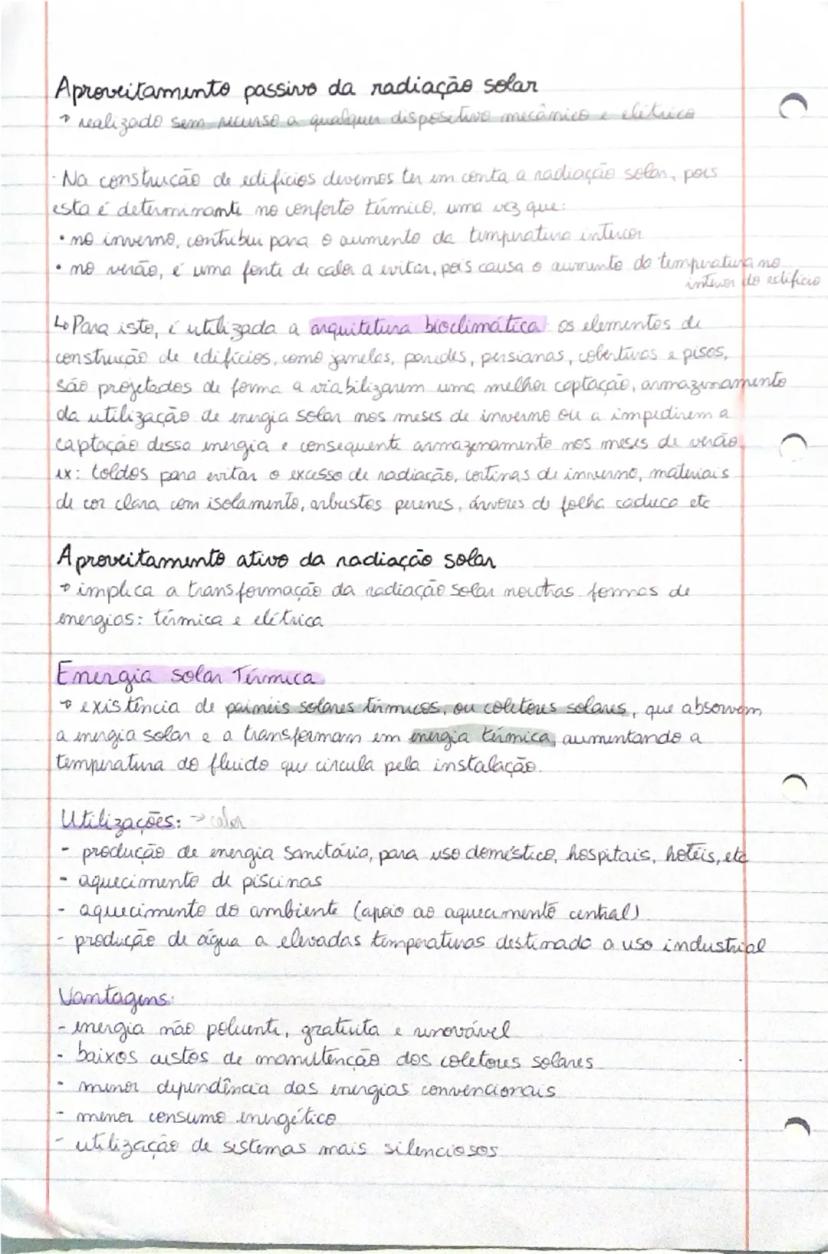 Aproveitamento passivo da radiação solar
→ realizado sem recurso a qualquer dispositivo mecânico e elétrico
· Na construção de edifícios devemos ter em conta a radiação solar, pois
esta é determinante no conforto térmico, uma vez que:
• no inverno, contribui para o aumento da temperatura interior
• no verão, é uma fonte de calor a evitar, pois causa o aumento da temperatura no
interior do edifício
↳ Para isto, é utilizada a arquitetura bioclimática os elementos de
construção de edifícios, como janelas, paredes, persianas, coberturas e pisos,
são projetados de forma a viabilizarem uma melhor captação, armazenamento
da utilização de energia solar nos meses de inverno ou a impedirem a
captação dessa energia e consequente armazenamento nos meses de verão.
ex: toldos para evitar o excesso de radiação, cortinas de inverno, materiais
de cor clara com isolamento, arbustos perenes, árvores de folha caduca etc
Aproveitamento ativo da radiação solar
→ implica a transformação da radiação solar noutras formas de
energias: térmica e elétrica
Energia solar Térmica
→ existência de painéis solares térmicos, ou coletores solares, que absorvem
a energia solar e a transformam em energia térmica, aumentando a
temperatura do fluido que circula pela instalação.
Utilizações: → calor
- produção de energia sanitária, para uso doméstico, hospitais, hotéis, etc
- aquecimento de piscinas
- aquecimento do ambiente (apoio ao aquecimento central)
- produção de água a elevadas temperaturas destinado a uso industrial
Vantagens:
- energia não poluente, gratuita e renovável
- baixos custos de manutenção dos coletores solares
- menor dependência das energias convencionais
- menor consumo energético
- utilização de sistemas mais silenciosos